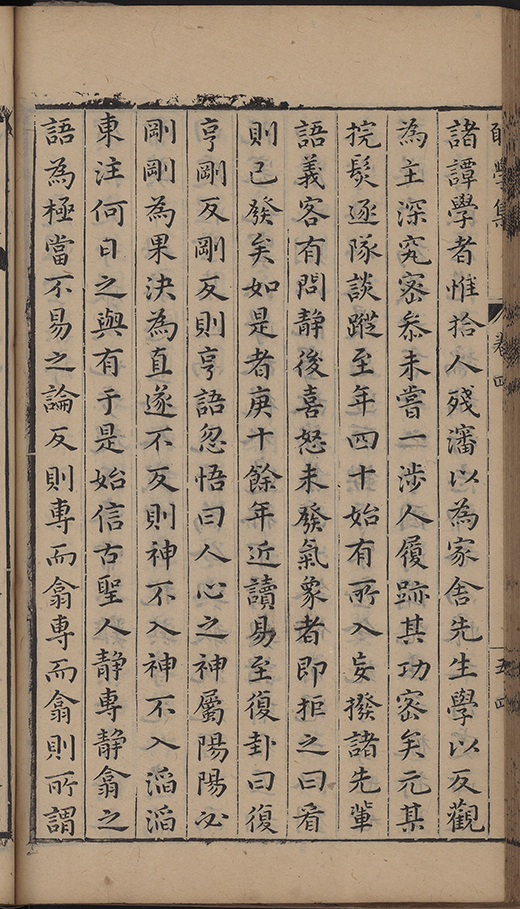 學集 卷四
諸譚學者惟拾人殘瀋以為家舍先生學以反觀
為主深究密叅未嘗一涉人履跡其功密矣元其
捖髮逐隊談蹤至年四十始有所入妄撥諸先輩
語義客有問靜後喜怒未發氣象者即拒之曰看
則已發矣如是者庚十餘年近讀易至復卦曰復
亨剛反剛反則亨語忽悟曰人心之神屬陽陽必
剛剛為果決為直遂不反則神不入神不入滔滔
東注何日之與有于是始信古聖人靜專靜翕之
語為極當不易之論反則專而翕專而翕則所謂